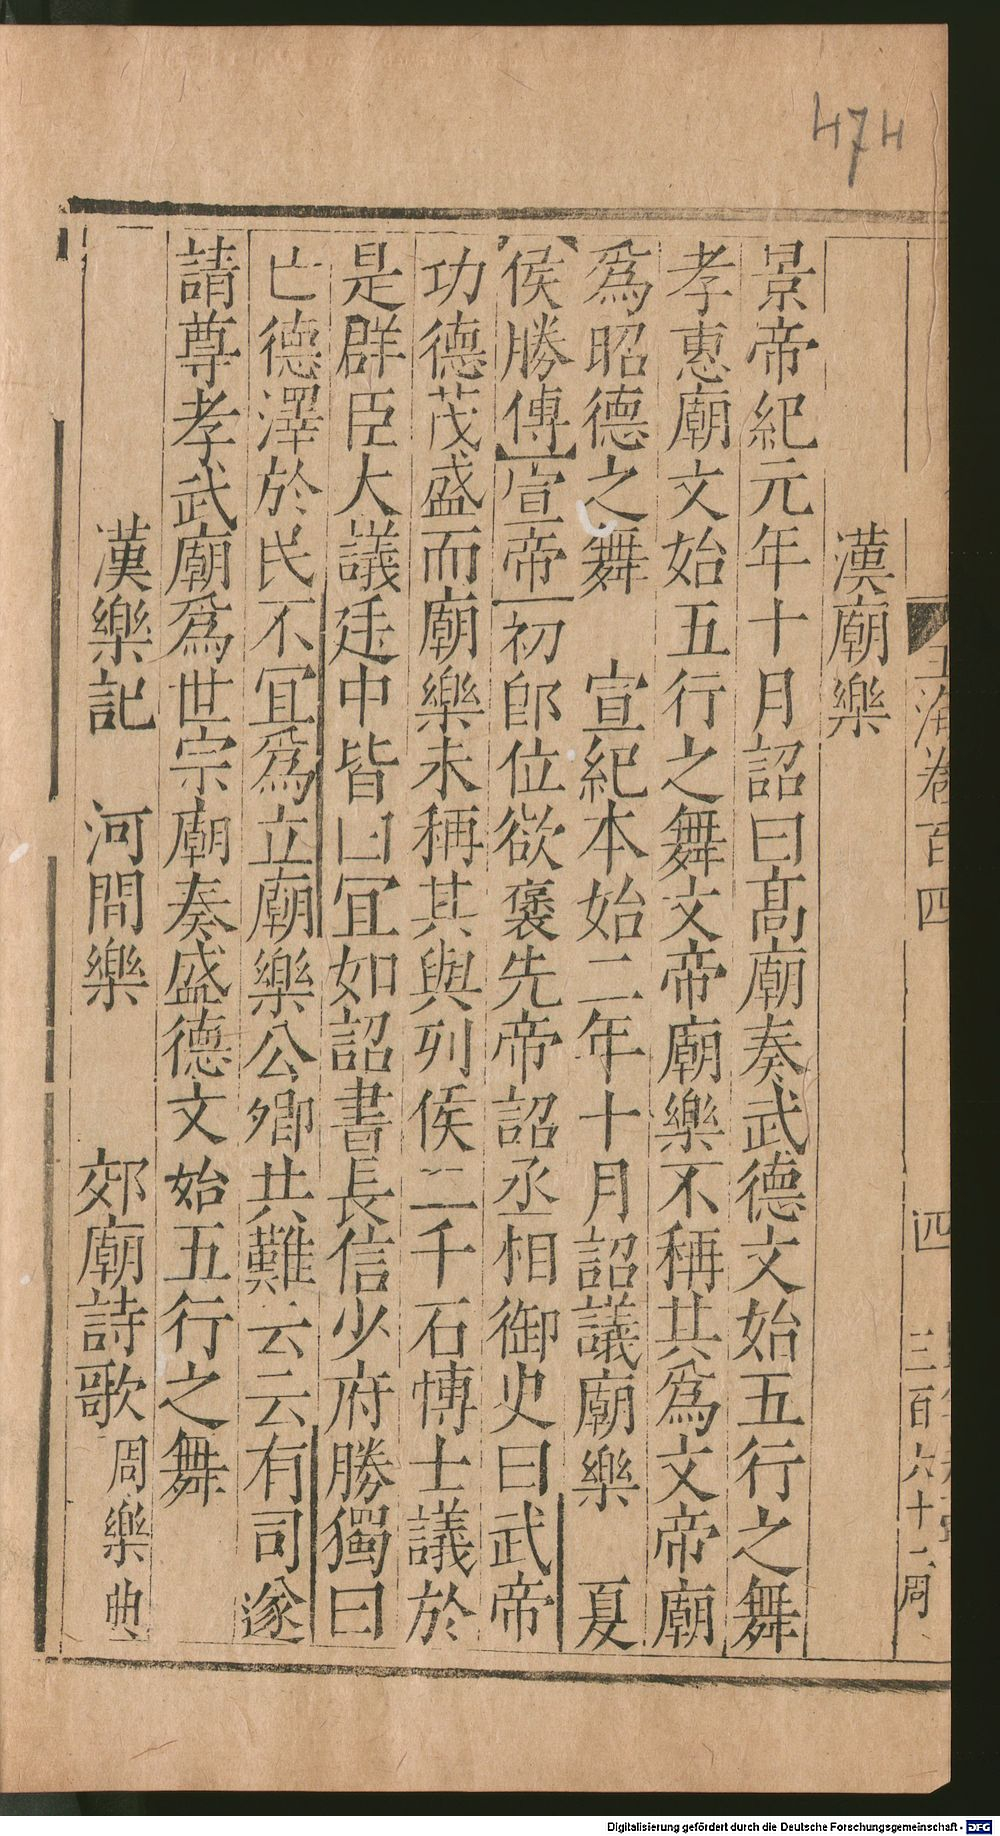 474
玉海卷百四
四
三百六十二周
漢廟樂
景帝紀元年十月詔曰高廟奏武德文始五行之舞
孝惠廟文始五行之舞文帝廟樂不稱其爲文帝廟
爲昭德之舞 宣紀本始二年十月詔議廟樂 夏
侯勝傳宣帝初卽位欲褒先帝詔丞相御史曰武帝
功德茂盛而廟樂未稱其與列侯二千石博士議於
是群臣大議廷中皆曰冝如詔書長信少府勝獨曰
亡德澤於民不冝爲立廟樂公卿共難云云有司遂
請尊孝武廟爲世宗廟奏盛德文始五行之舞
漢樂記 河間樂 郊廟詩歌 周樂典
Digitalisierung gefördert durch die Deutsche Forschungsgemeinschaft - DFG